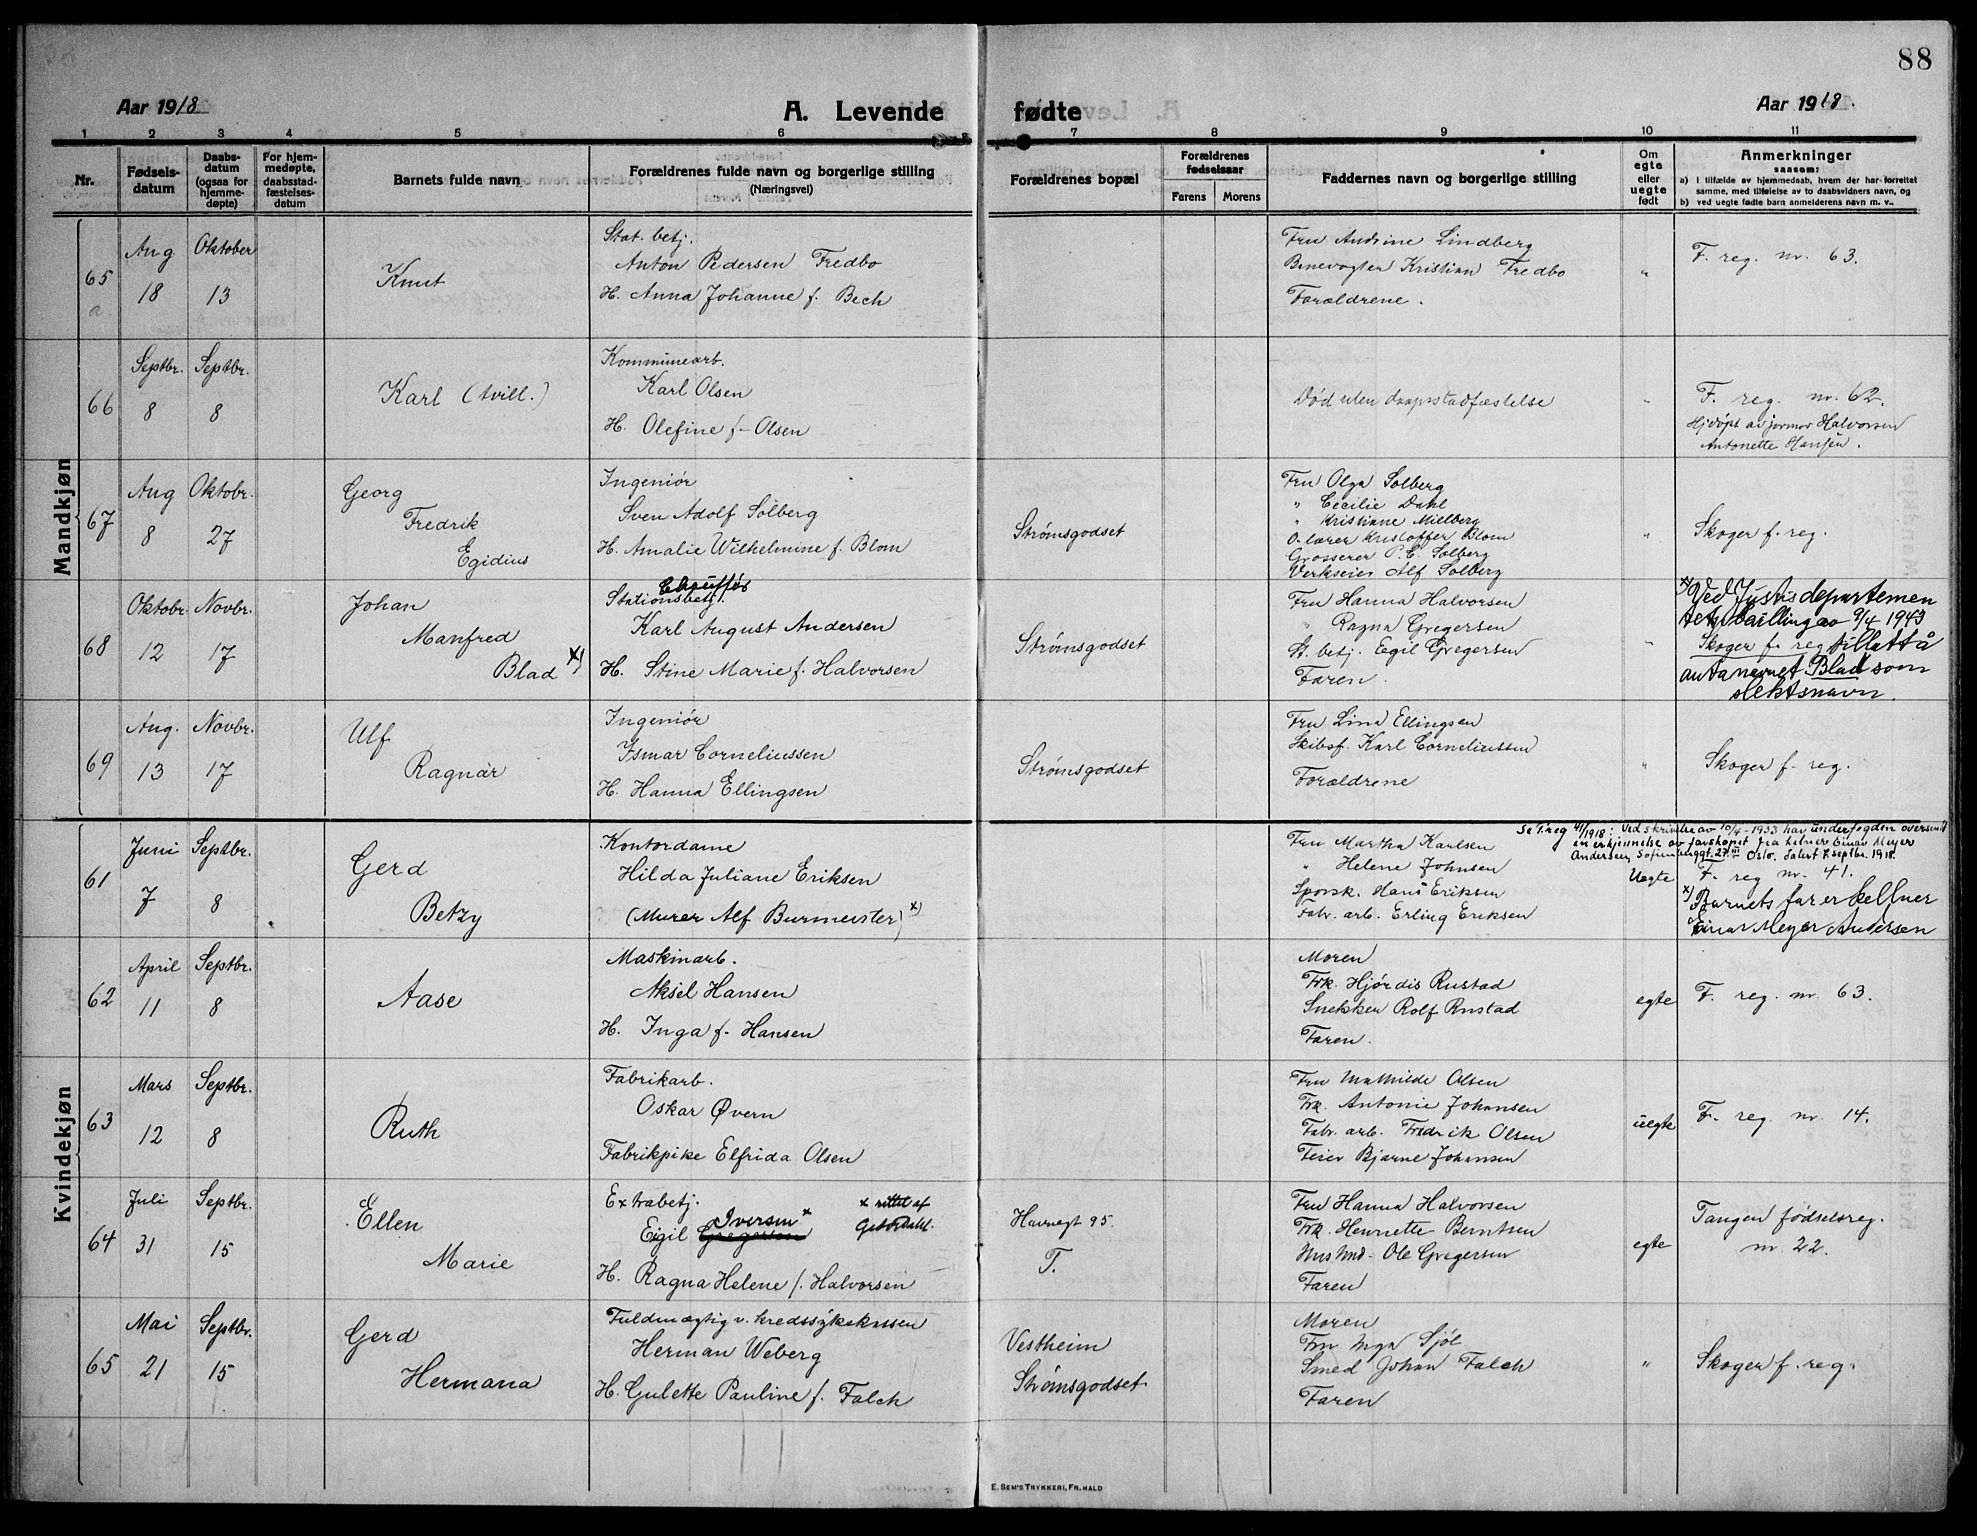 88
Aar 1918
A. Levende
fødte
Aar 1918.
1 2 3 4 5 6 7 8 9 10 11
Nr.
Fødsels-
datum
Daabs-
datum
(ogsaa for
hjemme-
døpte)
For hjem-
medøpte,
daabsstad-
fæstelses-
datum
Barnets fulde navn
Forældrenes fulde navn og borgerlige stilling
(Næringsvei)
Forældrenes bopæl
Forældrenes
fødselsaar
Farens Morens
Faddernes navn og borgerlige stilling
Om
egte
eller
uegte
født
Anmerkninger
saasom:
a) I tilfælde av hjemmedaab, hvem der har forrettet
samme, med tilføielse av to daabsvidners navn, og
b) ved uegte fødte barn anmelderens navn m. v..
Mandkjøn
65
a
Aug
18
Oktober
13
Knut
Stat. betj.
Anton Pedersen Fredbo
H. Anna Johanne f. Bech
Fru Andrine Lindberg
Banevogter Kristian Fredbo
Forældrene.
"
F. reg. nr. 63.
66
Septbr.
8
Septbr.
8
Karl (tvill.)
Kommunearb.
Karl Olsen
H. Olefine f. Olsen
Død uten daapsstadfæstelse
"
F. reg. nr. 62.
Hjdøpt av jormor Halvorsen
Antonette Hansen.
67
Aug
8
Oktobr.
27
Georg
Fredrik
Egidius
Ingeniør
Sven Adolf Solberg
H. Amalie Wilhelmine f. Blom
Strømsgodset
Fru Olga Solberg
" Cecilie Dahl
" Kristiane Mielberg
O.lærer Kristoffer Blom
Grosserer P. E. Solberg
Verkseier Alf Solberg
"
Skoger f. reg.
68
Oktobr.
12
Novbr.
17
Johan
Manfred
Blad x)
Chauffør
Stationsbetj.
Karl August Andersen
H. Stine Marie f. Halvorsen
Strømsgodset
Fru Hanna Halvorsen
" Ragna Gregersen
St. betj. Egil Gregersen
Faren.
"
x) Ved Justisdepartemen
tets bevilling av 9/4 1943
Skoger f. reg. tillatt å
anta navnet Blad som
slektsnavn.
69
Aug.
13
Novbr.
17
Ulf
Ragnar
Ingeniør
Ismar Corneliussen
H. Hanna Ellingsen
Strømsgodset
Fru Lina Ellingsen
Skibsf. Karl Corneliussen
Forældrene
"
Skoger f. reg.
Kvindekjøn
61
Juni
7
Septbr.
8
Gerd
Betzy
Kontordame
Hilda Juliane Eriksen
(Murer Alf Burmeister) x)
Fru Martha Karlsen
" Helene Johnsen
Sporsk. Hans Eriksen
Fabr. arb. Erling Eriksen
Uegte
Se F. reg 41/1918: Ved skrivelse av 10/4-1933 har underfogden oversendt
en erkjennelse av farskapet fra kelner Einar Meyer
Andersen, Sofienberggt. 27 III Oslo. Datert 7. septbr. 1918.
F. reg nr. 41.
x) Barnets far er kellner
Einar Meyer Andersen
62
April
11
Septbr.
8
Aase
Maskinarb.
Aksel Hansen
H. Inga f. Hansen
Moren
Frk. Hjørdis Rustad
Snekker Rolf Rustad
Faren.
egte
F. reg. nr. 63.
63
Mars
12
Septbr.
8
Ruth
Fabrikarb.
Oskar Øvern
Fabrikpike Elfrida Olsen
Fru Mathilde Olsen
Frk. Antonie Johansen
Fabr. arb. Fredrik Olsen
Feier Bjarne Johansen
uegte
F. reg. nr. 14.
64
Juli
31
Septbr.
15
Ellen
Marie
Extrabetj.
x rettet af
Iversen x
Egil Gregersen
H. Ragna Helene f. Halvorsen
Havnegt 95.
T.
Fru Hanna Halvorsen
Frk. Henriette Berntsen
Husmd. Ole Gregersen
Faren
egte
Tangen fødselsreg.
nr. 22.
65
Mai
21
Septbr.
15
Gerd
Hermana
Fuldmægtig v. kredssykekassen
Herman Weberg
H. Gulette Pauline f. Falch
Vestheim
Strømsgodset
Moren
Fru Inga Sjöl
Smed Johan Falch
Faren
"
Skoger f. reg.
E. SEM'S TRYKKERI, FR.HALD